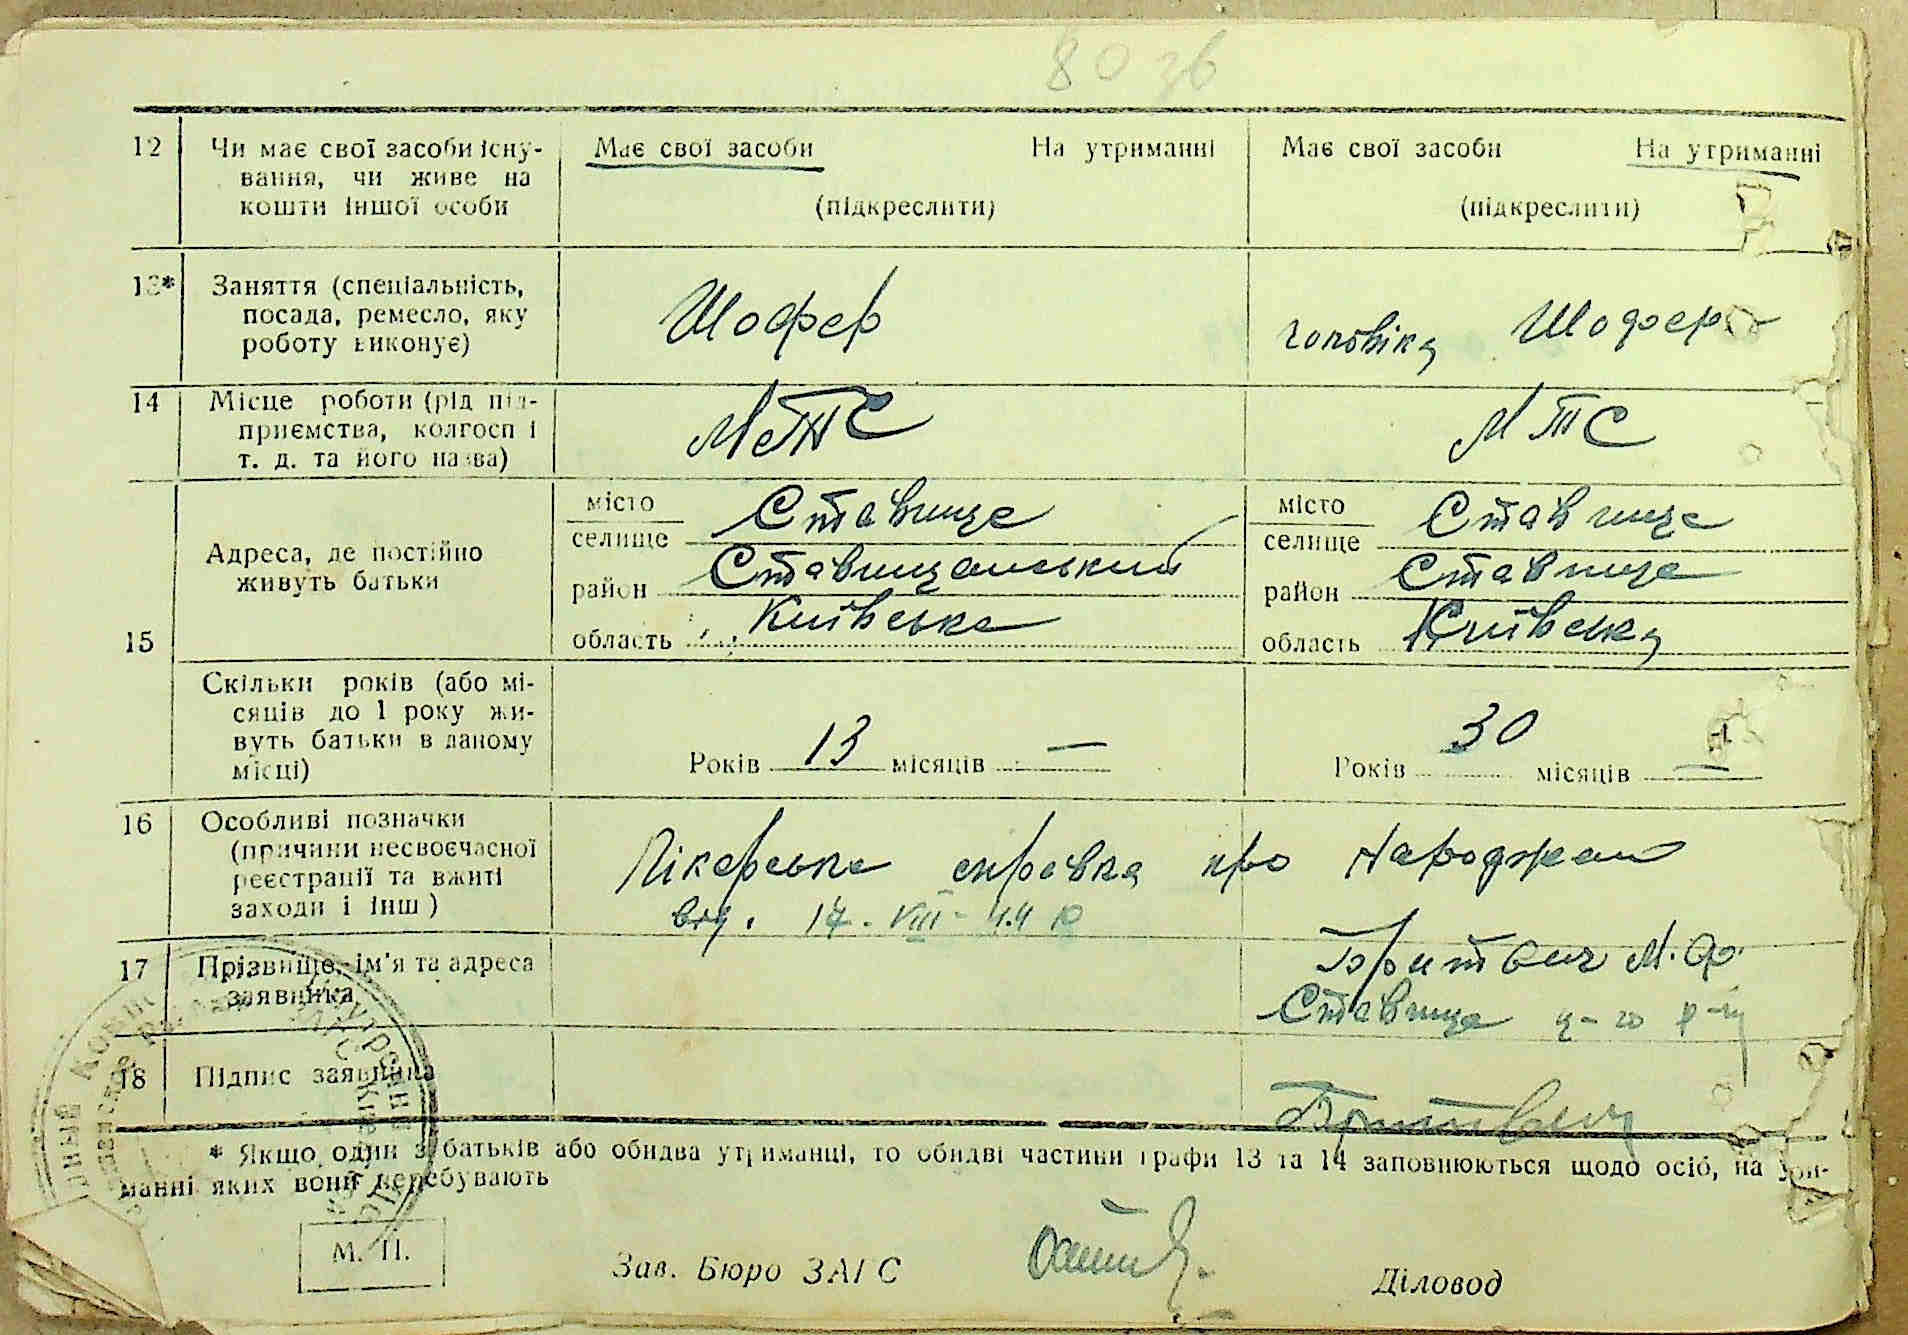 80 зв
12 Чи має свої засоби існу- Має свої засоби На утриманні Має свої засоби На утриманні
вання, чи живе на
кошти іншої особи (підкреслити) (підкреслити)
13* Заняття (спеціальність,
посада, ремесло, яку Шофер чоловіка Шофер
роботу виконує)
14 Місце роботи (рід під-
приємства, колгосп і МТС МТС
т. д. та його назва)
місто Ставище місто Ставище
селище селище
Адреса, де постійно
живуть батьки район Ставищанський район Ставище
15 область Київська область Київська
Скільки років (або мі-
сяців до 1 року жи-
вуть батьки в даному Років 13 місяців — Років 30 місяців —
місці)
16 Особливі позначки
(причини несвоєчасної Лікарська справка про народжен
реєстрації та вжиті
заходи і інш) від. 17. VIII - 44 р
17 Прізвище, ім'я та адреса Бритвич М. Ф.
заявника Ставище
18 Підпис заявника Бритвич
* Якщо один з батьків або обидва утриманці, то обидві частини графи 13 та 14 заповнюються щодо осіб, на утри-
манні яких вони перебувають
М. П.
Зав. Бюро ЗАГС Діловод